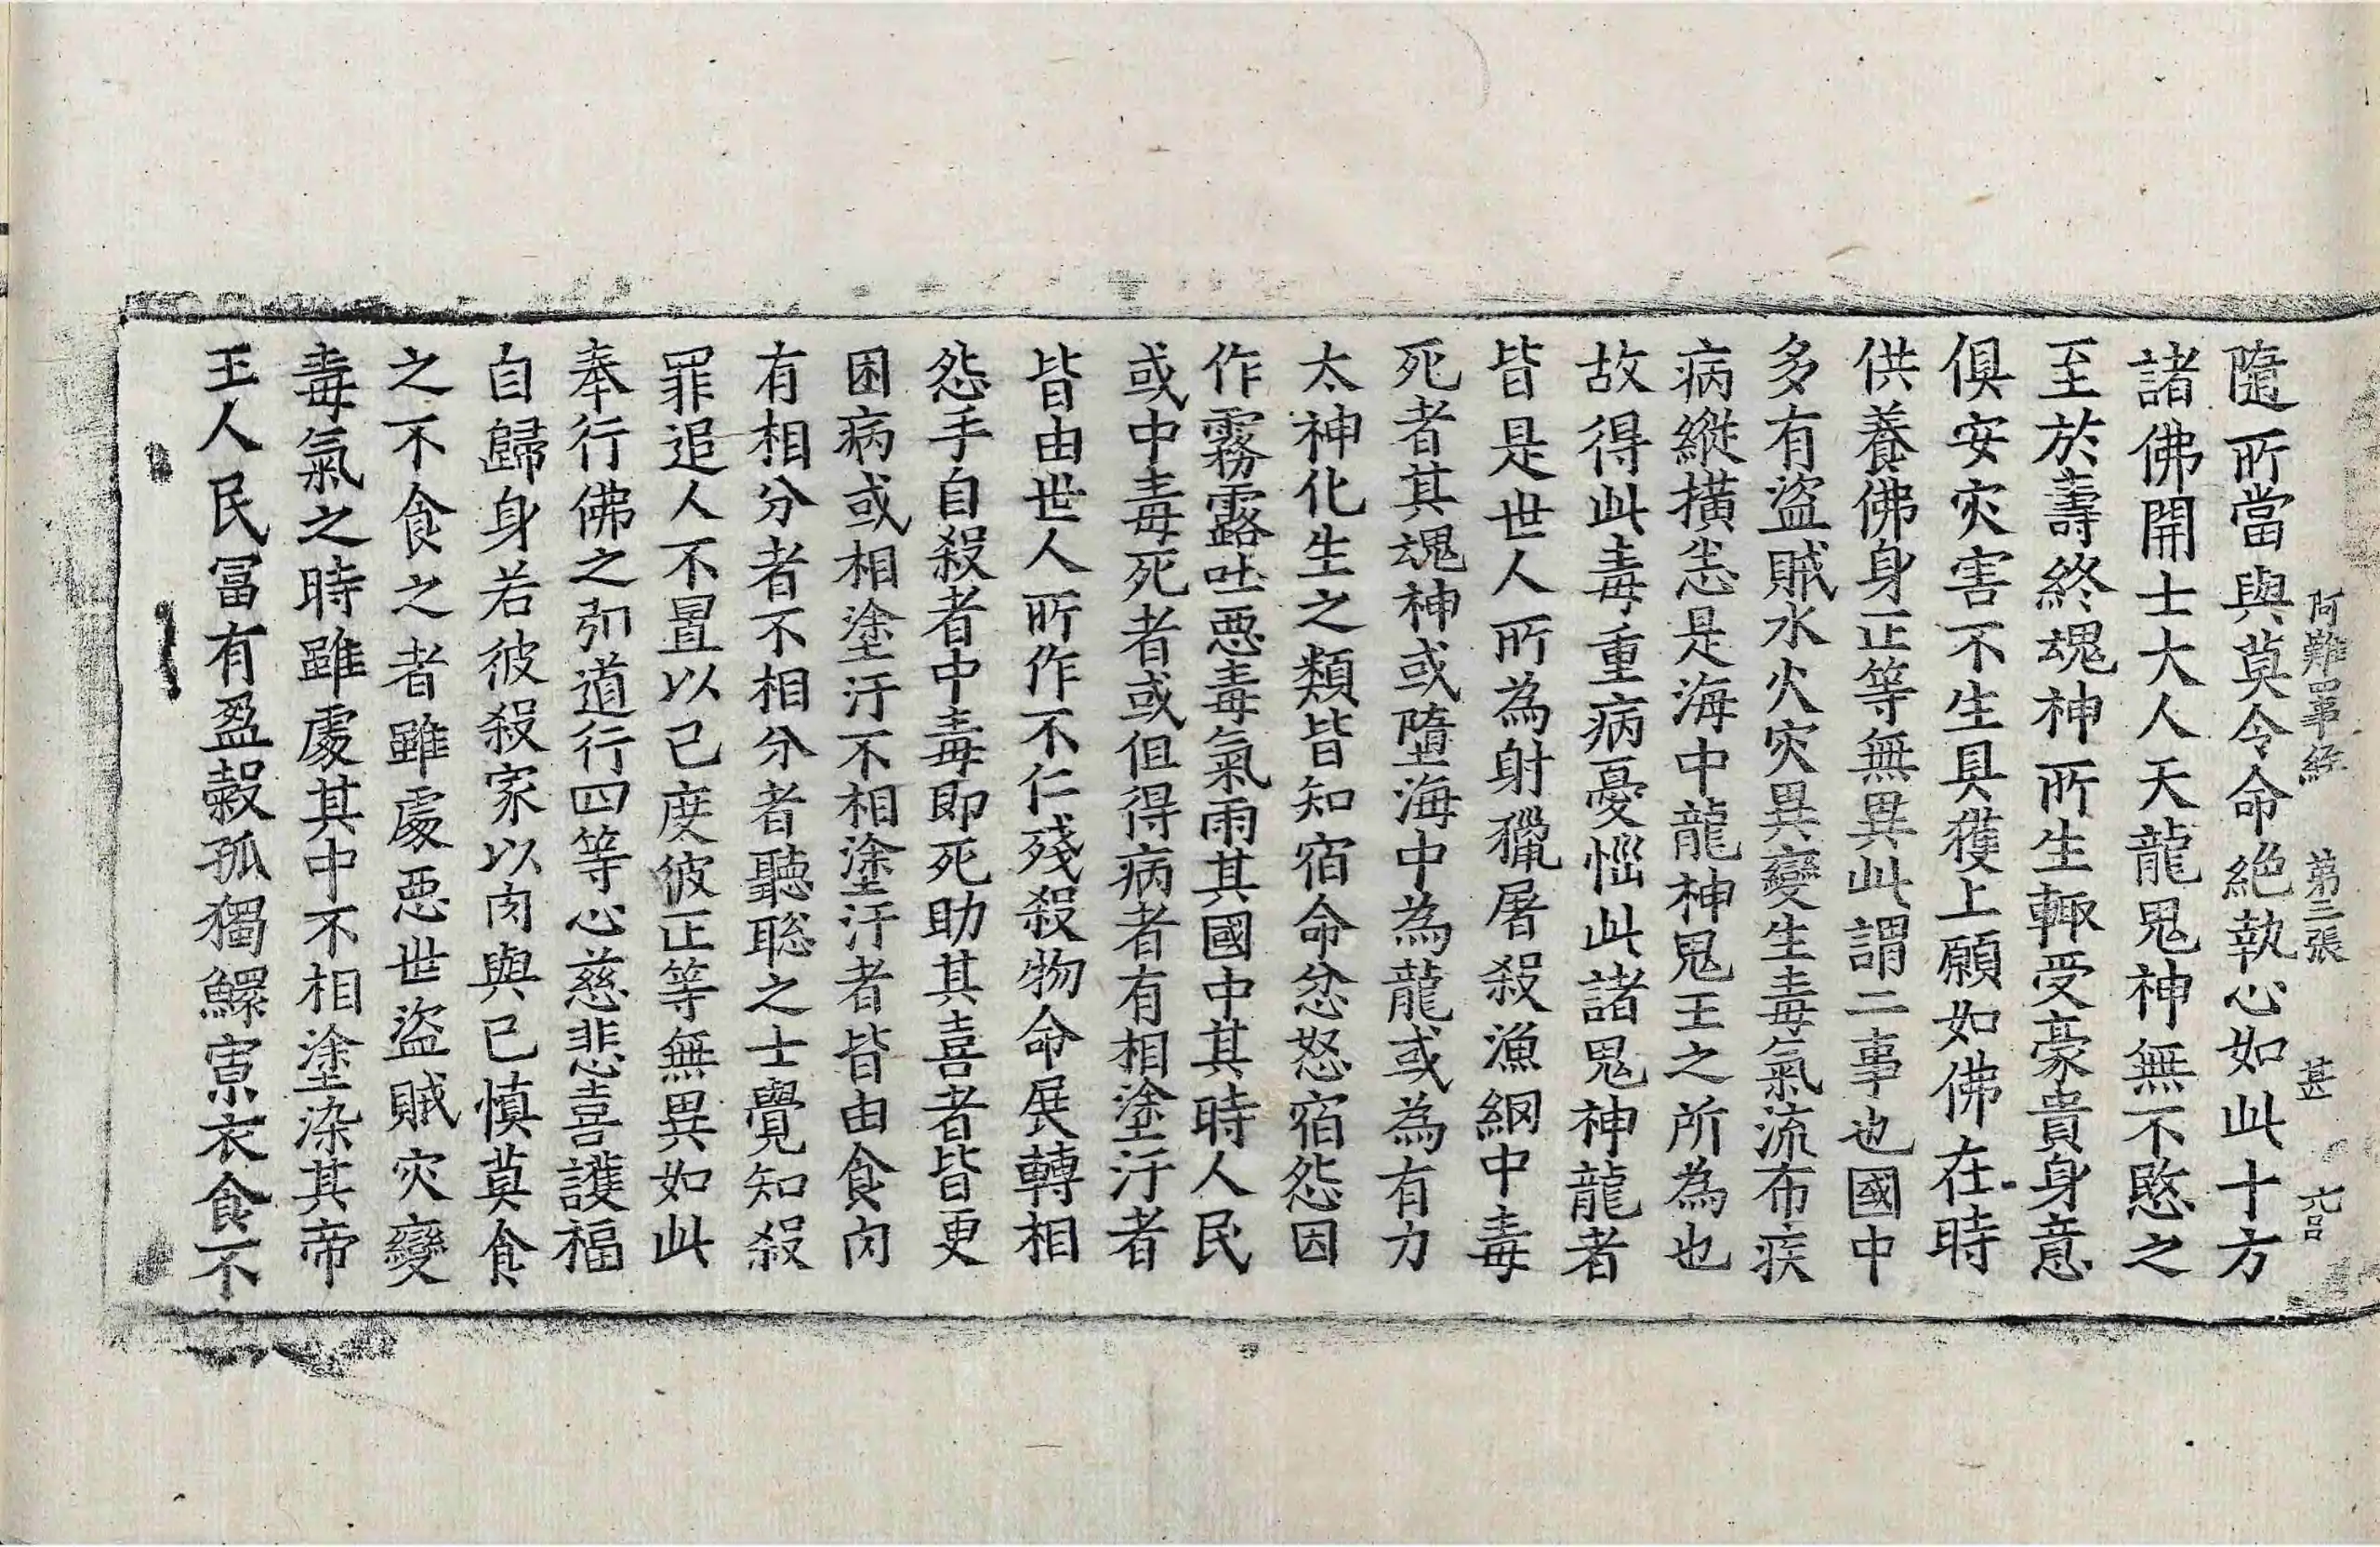 阿難四事經 第三張 甚
隨所當與莫令命絕執心如此十方
諸佛開士大人天龍鬼神無不愍之
至於壽終魂神所生輒受豪貴身意
俱安灾害不生具獲上願如佛在時
供養佛身正等無異此謂二事也國中
多有盜賊水火灾異變生毒氣流布疾
病縱橫恙是海中龍神鬼王之所為也
故得此毒重病憂惱此諸鬼神龍者
皆是世人所為射獵屠殺漁網中毒
死者其魂神或墮海中為龍或為有力
太神化生之類皆知宿命忿怒宿怨因
作霧露吐惡毒氣雨其國中其時人民
或中毒死者或但得病者有相塗汙者
皆由世人所作不仁殘殺物命展轉相
怨手自殺者中毒即死助其喜者皆更
困病或相塗汙不相塗汙者皆由食肉
有相分者不相分者聽聡之士覺知殺
罪追人不置以己度彼正等無異如此
奉行佛之明道行四等心慈悲喜護福
自歸身若彼殺家以肉與己慎莫食
之不食之者雖處惡世盜賊灾變
毒氣之時雖處其中不相塗染其帝
王人民冨有盈穀孤獨鰥寡衣食不